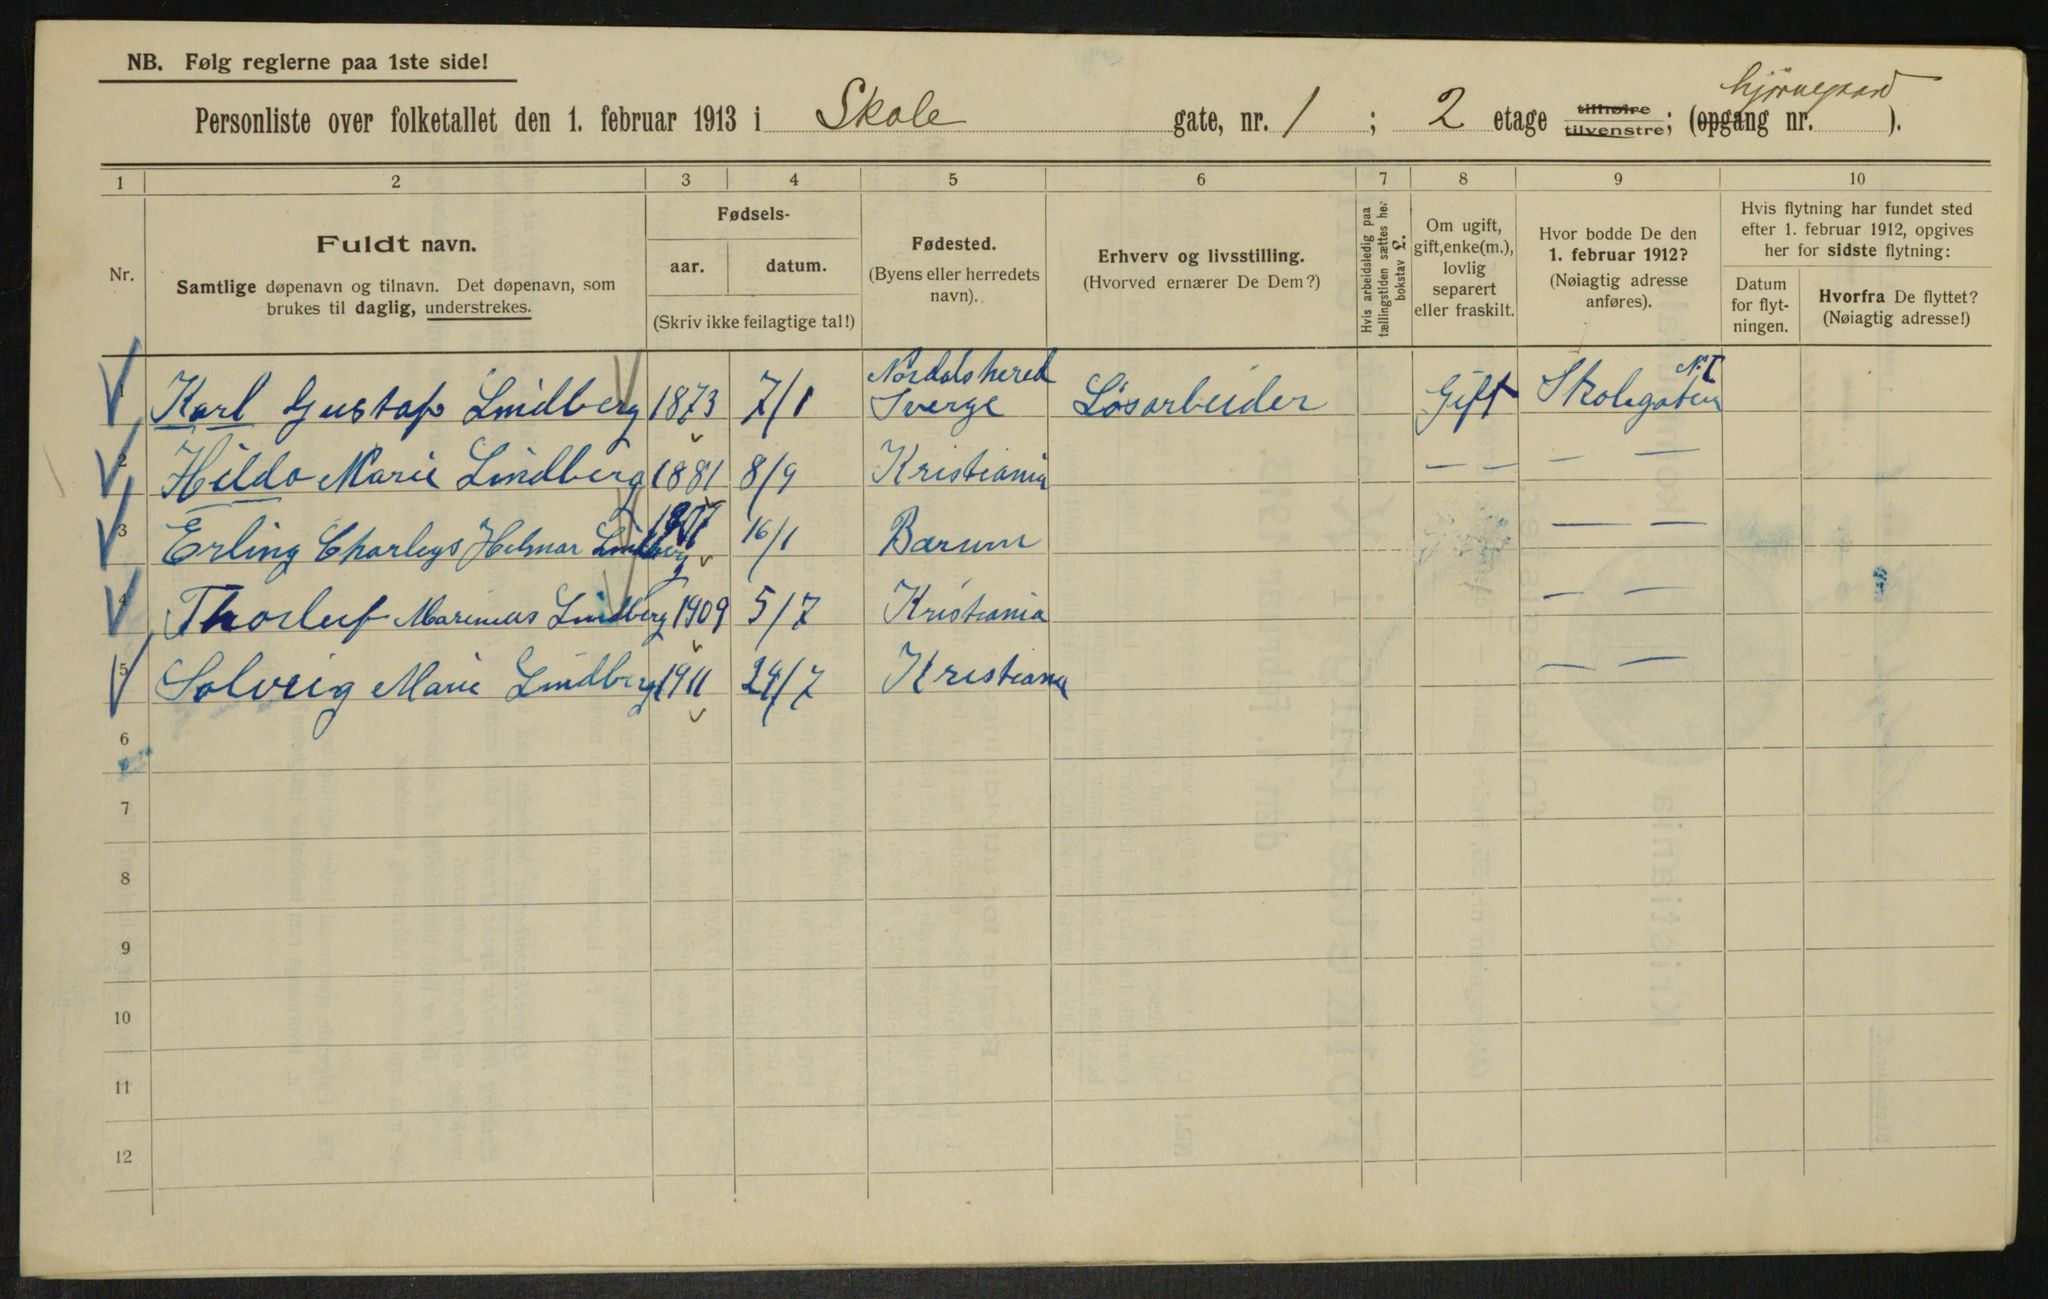 NB. Følg reglerne paa 1ste side!
Personliste over folketallet den 1. februar 1913 i Skole gate, nr. 1 ; 2 etage tilhøire tilvenstre; (opgang nr. hjørnegaard ).
1 2 3 4 5 6 7 8 9 10
Nr.
Fuldt navn.
Samtlige døpenavn og tilnavn. Det døpenavn, som
brukes til daglig, understrekes.
Fødsels-
aar. datum.
(Skriv ikke feilagtige tal!)
Fødested.
(Byens eller herredets
navn).
Erhverv og livsstilling.
(Hvorved ernærer De Dem?)
Hvis arbeidsledig paa
tællingstiden sættes her
bokstav L.
Om ugift,
gift, enke(m.),
lovlig
separert
eller fraskilt.
Hvor bodde De den
1. februar 1912?
(Nøiagtig adresse
anføres).
Hvis flytning har fundet sted
efter 1. februar 1912, opgives
her for sidste flytning:
Datum
for flyt-
ningen.
Hvorfra De flyttet?
(Nøiagtig adresse!)
1 Karl Gustaf Lindberg 1873 7/1 Nordalshered Sverge Løsarbeider Gift Skolegaten N. 1
2 Hilda Marie Lindberg 1881 8/9 Kristiania — — — —
3 Erling Charleys Helmar Lindberg 1907 16/1 Bærum — —
4 Thorleif Marinius Lindberg 1909 5/7 Kristiania — —
5 Solveig Marie Lindberg 1911 24/7 Kristiania — —
6
7
8
9
10
11
12